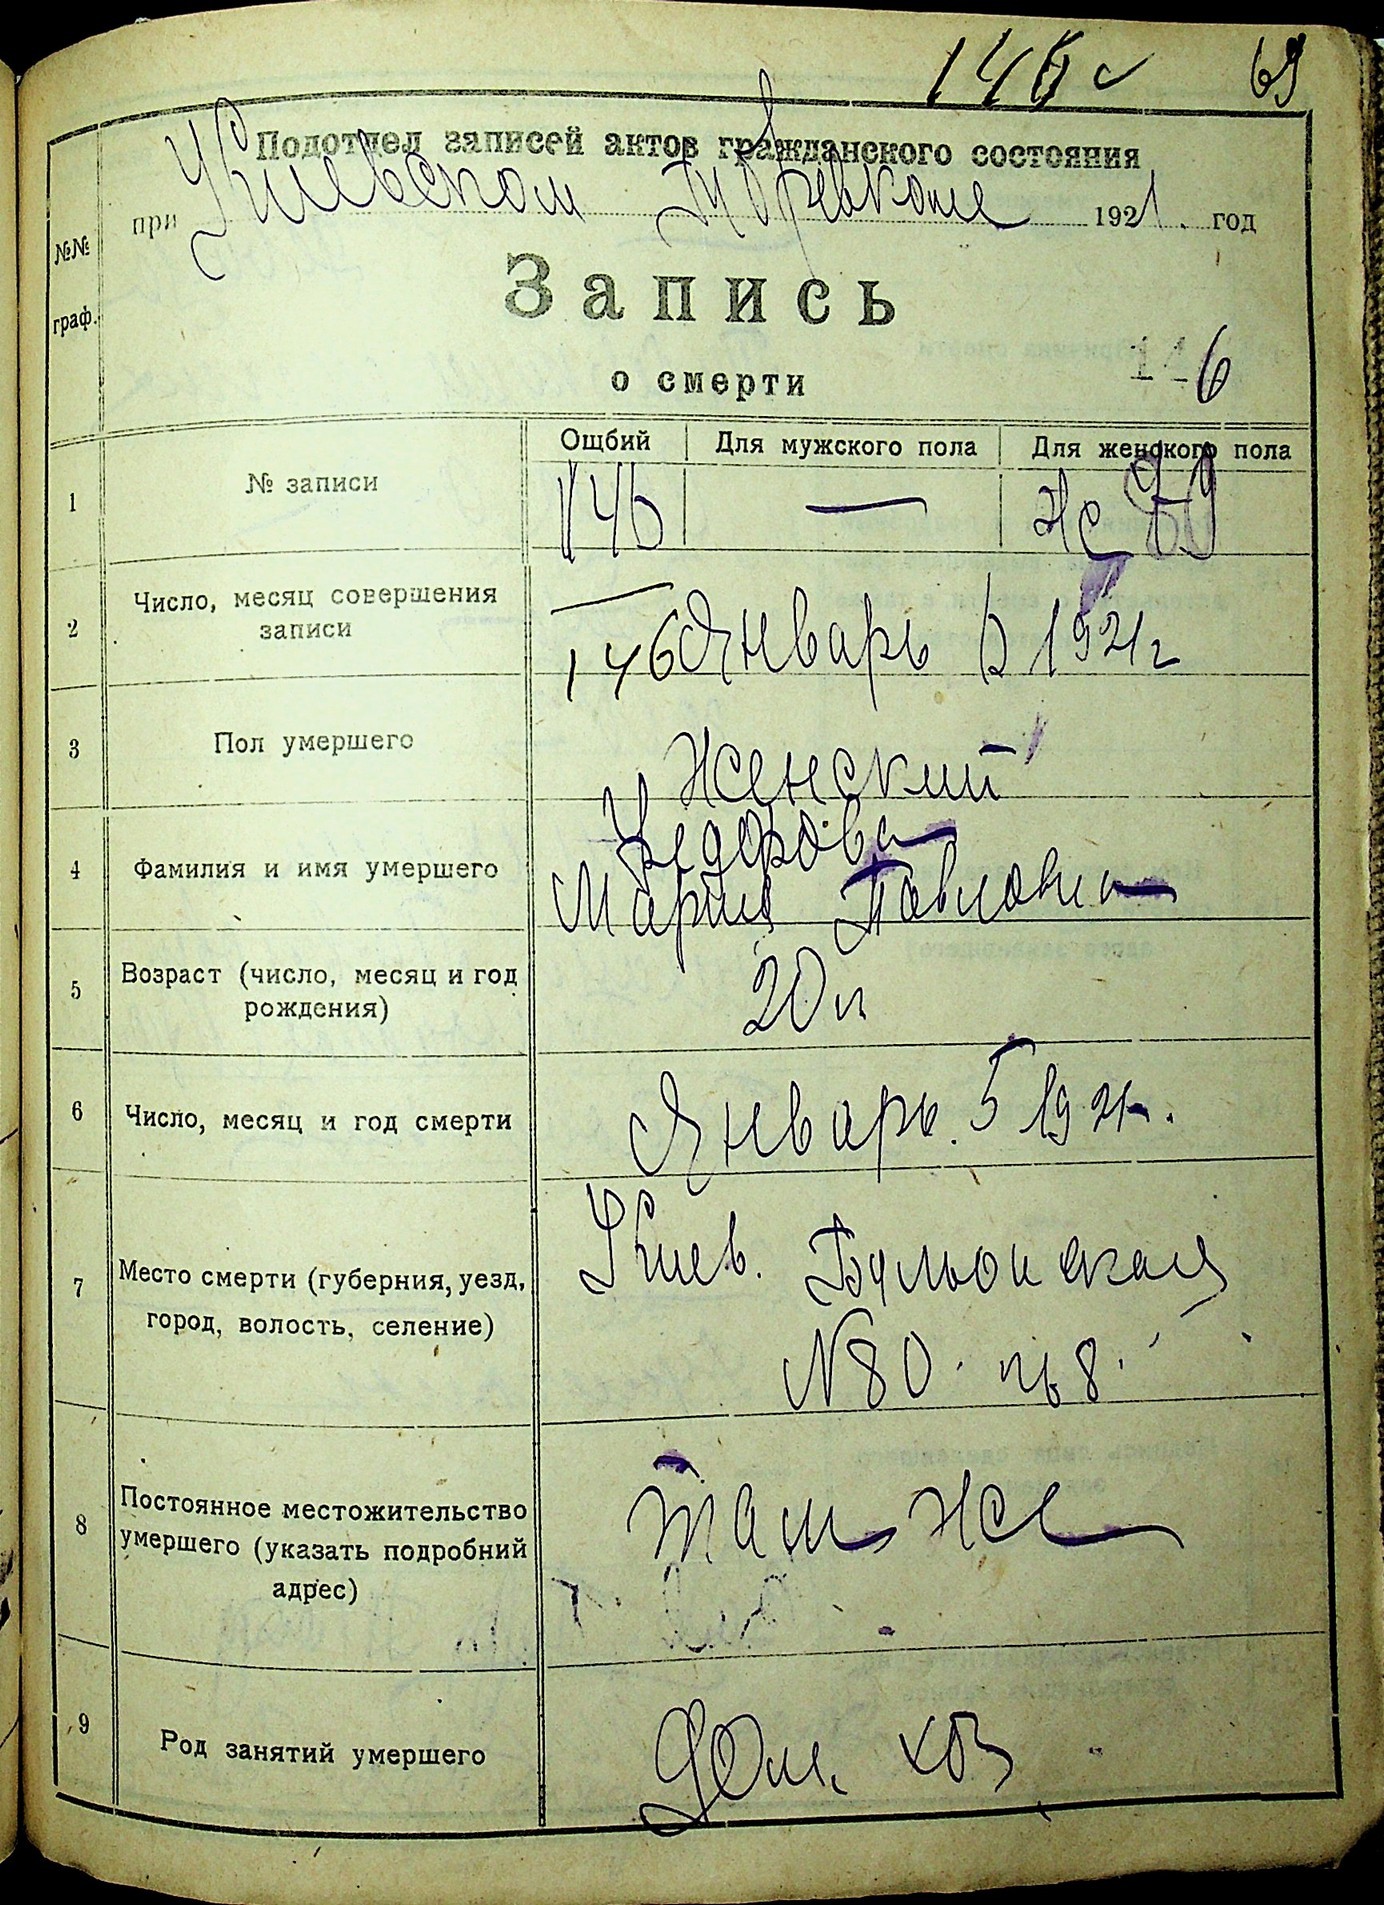 146 69
Подотдел записей актов гражданского состояния
при Киевском Губревкоме 1921. год
№№
граф.
Запись
о смерти
146
Ощбий Для мужского пола Для женского пола
1 № записи 146 — ж 69
2 Число, месяц совершения
записи
146 Январь 1921 г
3 Пол умершего Женский
4 Фамилия и имя умершего
Федорова
Мария Павловна
5 Возраст (число, месяц и год
рождения)
20 л
6 Число, месяц и год смерти Январь. 5 1921 г.
7 Место смерти (губерния, уезд,
город, волость, селение)
Киев. Бульонская
N 80. кв 8.
8 Постоянное местожительство
умершего (указать подробний
адрес)
там же
9 Род занятий умершего Дом. хоз